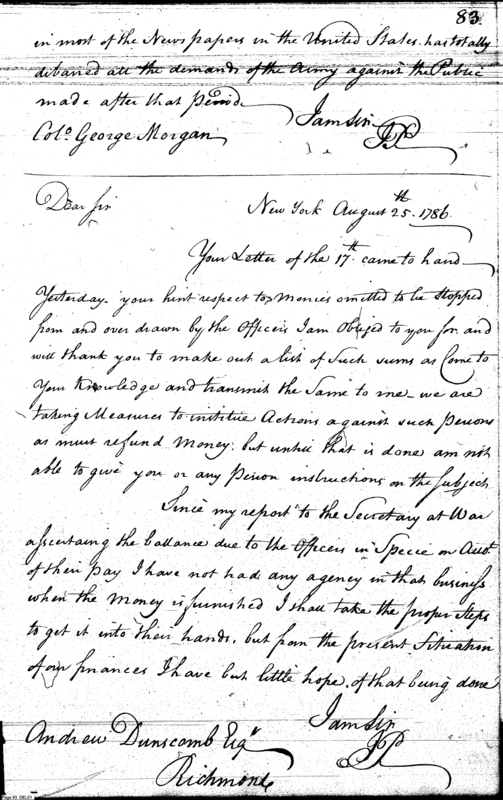 83
in most of the News papers in the United States. has totally
debarred all the demands of the Army against the Public
made after that Period
I am Sir
JP
Colo. George Morgan
Dear Sir
New York August 25th. 1786.
Your Letter of the 17th. came to hand
Yesterday. your hint respectg Monies omitted to be stopped
from and over drawn by the Officers I am Obliged to you for. and
will thank you to make out a list of Such sums as Come to
Your Knowledge and transmit the Same to me - we are
taking Measures to institue Actions against such Persons
as must refund Money: but untill that is done am not
able to give you or any Person instructions on the Subject.
Since my report to the Secretary at War
assertaing the ballance due to the Officers in Specie on Accot.
of their Pay I have not had any agency in that business
when the Money is furnished I shall take the proper Steps
to get it into their hands. but from the present Situation
of our finances I have but little hope. of that being done
I am Sir
JP
Andrew Dunscomb Esqr
Richmond